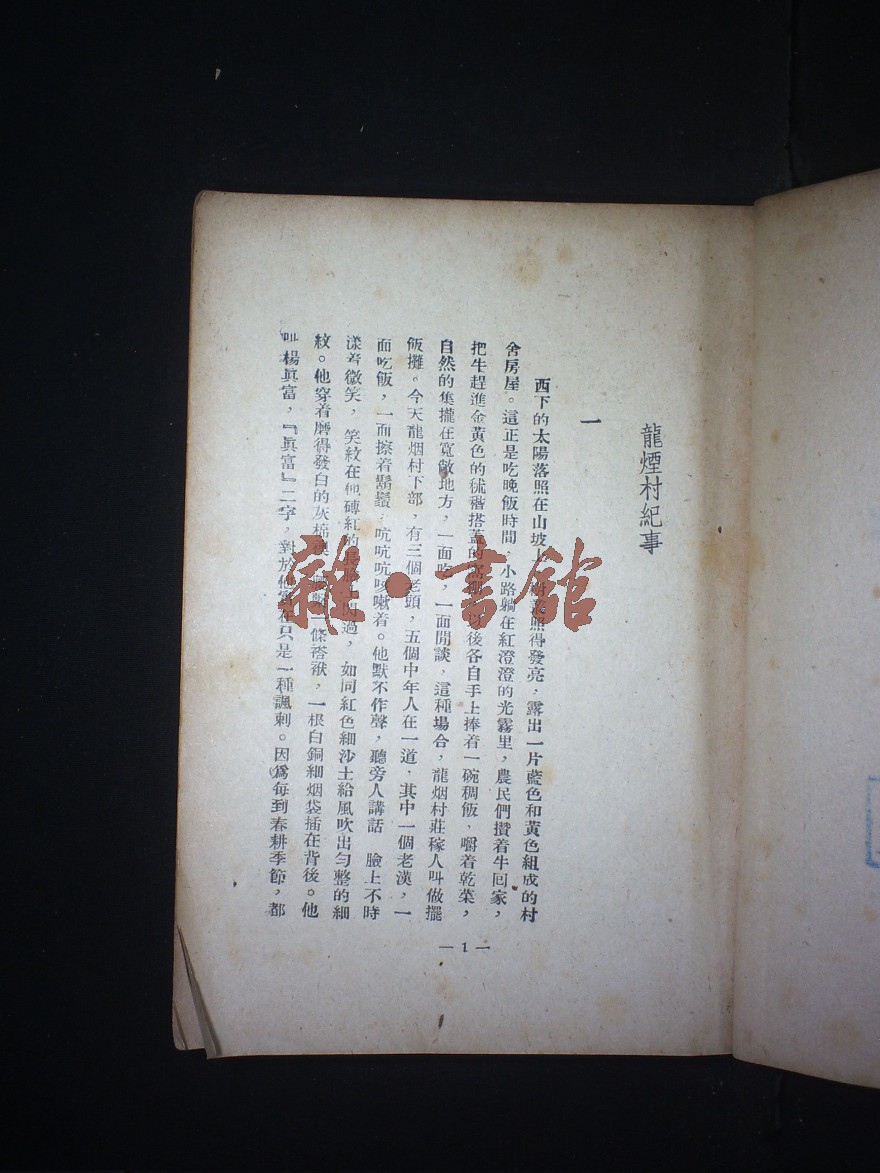 龍煙村紀事
一
西下的太陽落照在山坡上，樹葉照得發亮，露出一片藍色和黃色組成的村
舍房屋。這正是吃晚飯時間，小路躺在紅澄澄的光霧里，農民們攢着牛回家，
把牛趕進金黃色的秫稭搭蓋的以後各自手上捧着一碗稠飯，嚼着乾菜，
自然的集攏在寬敞地方，一面吃，一面閒談，這種場合，龍烟村莊稼人叫做擺
飯攤。今天龍烟村下部，有三個老頭，五個中年人在一道，其中一個老漢，一
面吃飯，一面擦着鬍鬚，吭吭吭咳嗽着。他默不作聲，聽旁人講話 臉上不時
漾着微笑，笑紋在他磚紅的閃過，如同紅色細沙土給風吹出勻整的細
紋。他穿着磨得發白的灰棉襖，一條褡袱，一根白銅細烟袋插在背後。他
叫楊眞富，『眞富』二字，對於他實在只是一種諷刺。因爲每到春耕季節，都
— 1 —
雜·書館